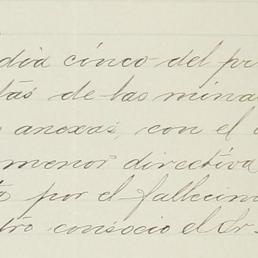 dia cinco del pr
tas de las mina
anexas, con el
menor directiva
por el fallecim
tro consocio el Sr.